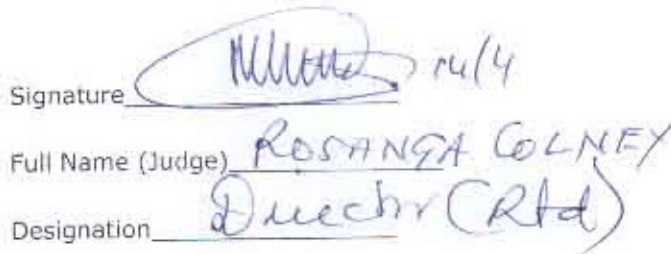 Signature 14/4
Full Name (Judge) ROSANGA COLNEY
Designation Director (Rtd)